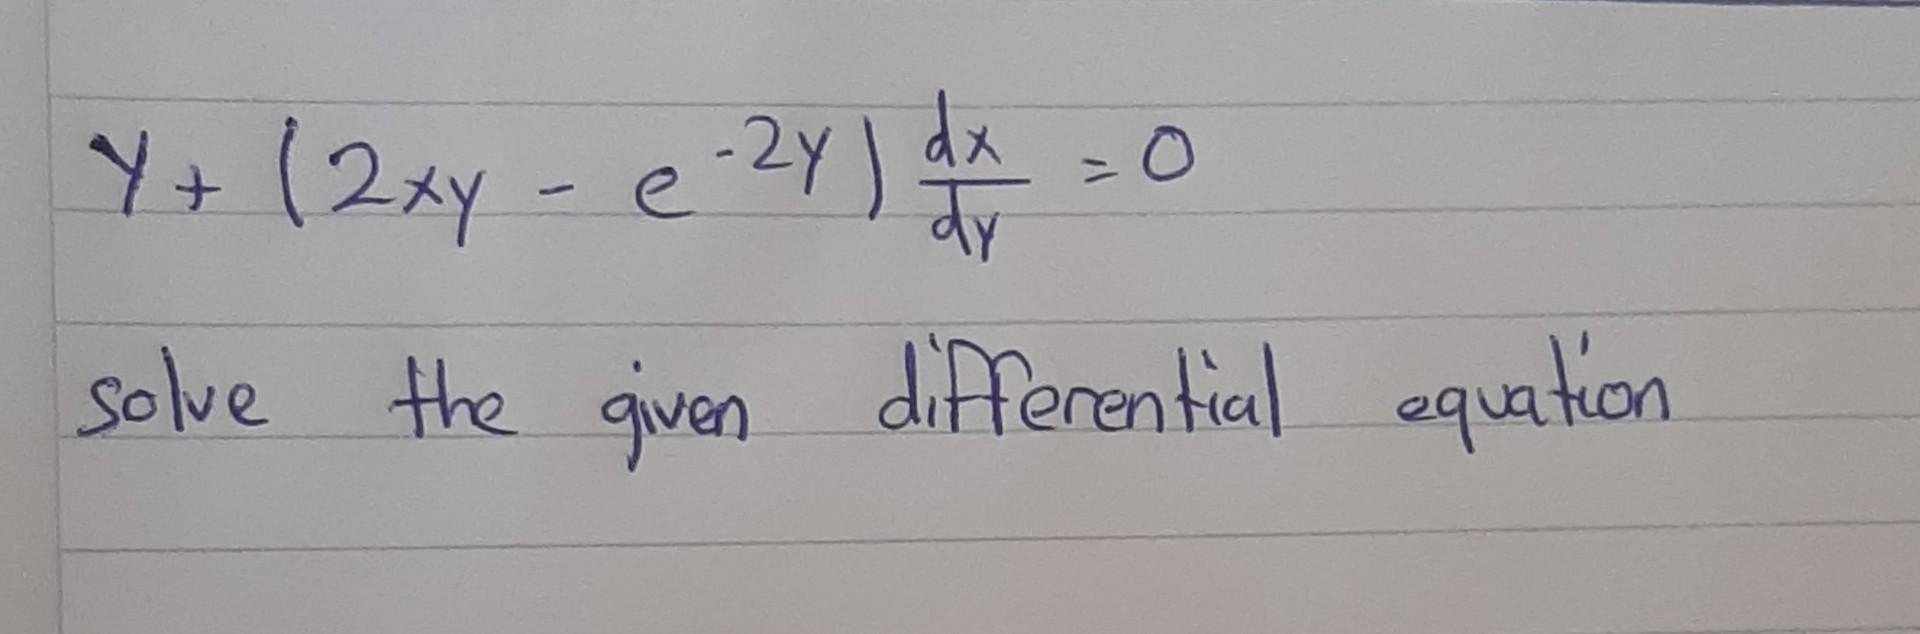 y + (2xy - e^{-2y}) \frac{dx}{dy} = 0
solve the given differential equation